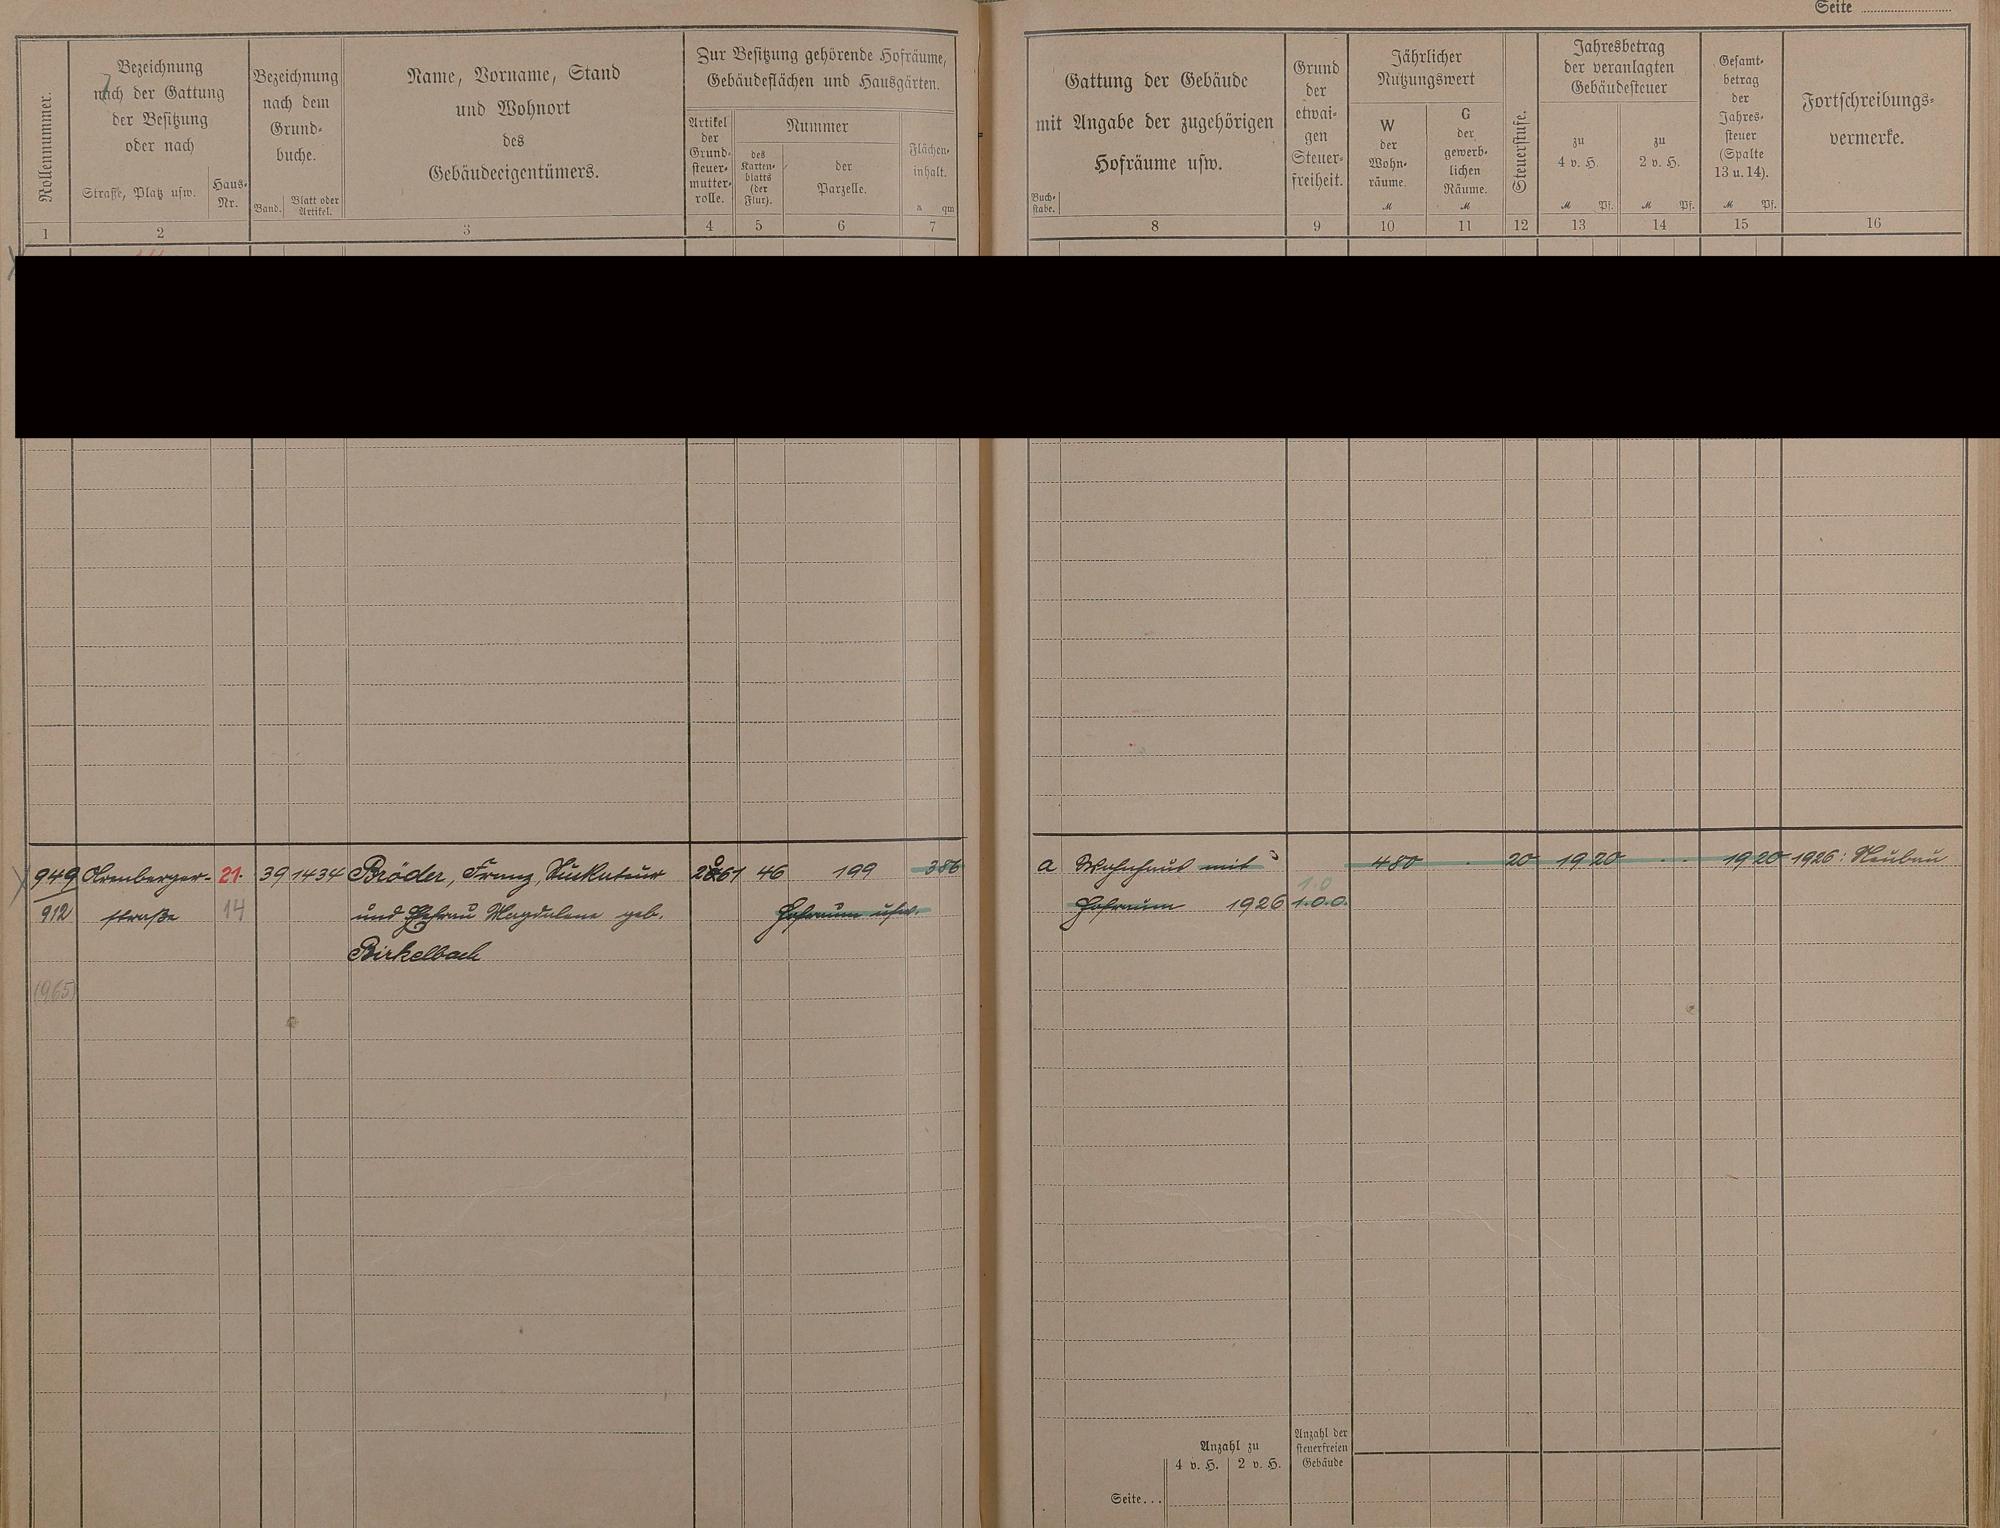 Seite
Rollennummer.
Bezeichnung
nach der Gattung
der Besitzung
oder nach
Straße, Platz usw.
Haus-
Nr.
Bezeichnung
nach dem
Grund-
buche.
Band.
Blatt oder
Artikel.
Name, Vorname, Stand
und Wohnort
des
Gebäudeeigentümers.
Zur Besitzung gehörende Hofräume,
Gebäudeflächen und Hausgärten.
Artikel
der
Grund-
steuer-
mutter-
rolle.
Nummer
des
Karten-
blatts
(der
Flur).
der
Parzelle.
Flächen-
inhalt.
a qm
1 2 3 4 5 6 7
Gattung der Gebäude
mit Angabe der zugehörigen
Hofräume usw.
Buch-
stabe.
Grund
der
etwai-
gen
Steuer-
freiheit.
Jährlicher
Nutzungswert
W
der
Wohn-
räume.
M
G
der
gewerb-
lichen
Räume.
M
Steuerstufe.
Jahresbetrag
der veranlagten
Gebäudesteuer
zu
4 v. H.
M Pf.
zu
2 v. H.
M Pf.
Gesamt-
betrag
der
Jahres-
steuer
(Spalte
13 u. 14).
M Pf.
Fortschreibungs-
vermerke.
8 9 10 11 12 13 14 15 16
949 21. 39 1434 Bröder, Franz, 46 199 386
912 straße 14 und Ehefrau Magdalene geb. Hofraum usw.
Birkelbach
(965)
a Wohnhaus mit 480 20 19 20 19 20 1926: Neubau
1.0
Hofraum 1926 1.0.0.
Anzahl zu
4 v. H. 2 v. H.
Anzahl der
steuerfreien
Gebäude
Seite...